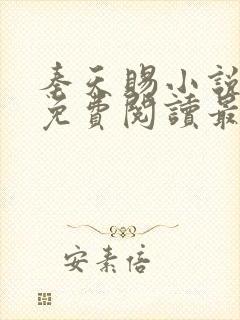 奉天賜小說
免費閱讀最
安素倍